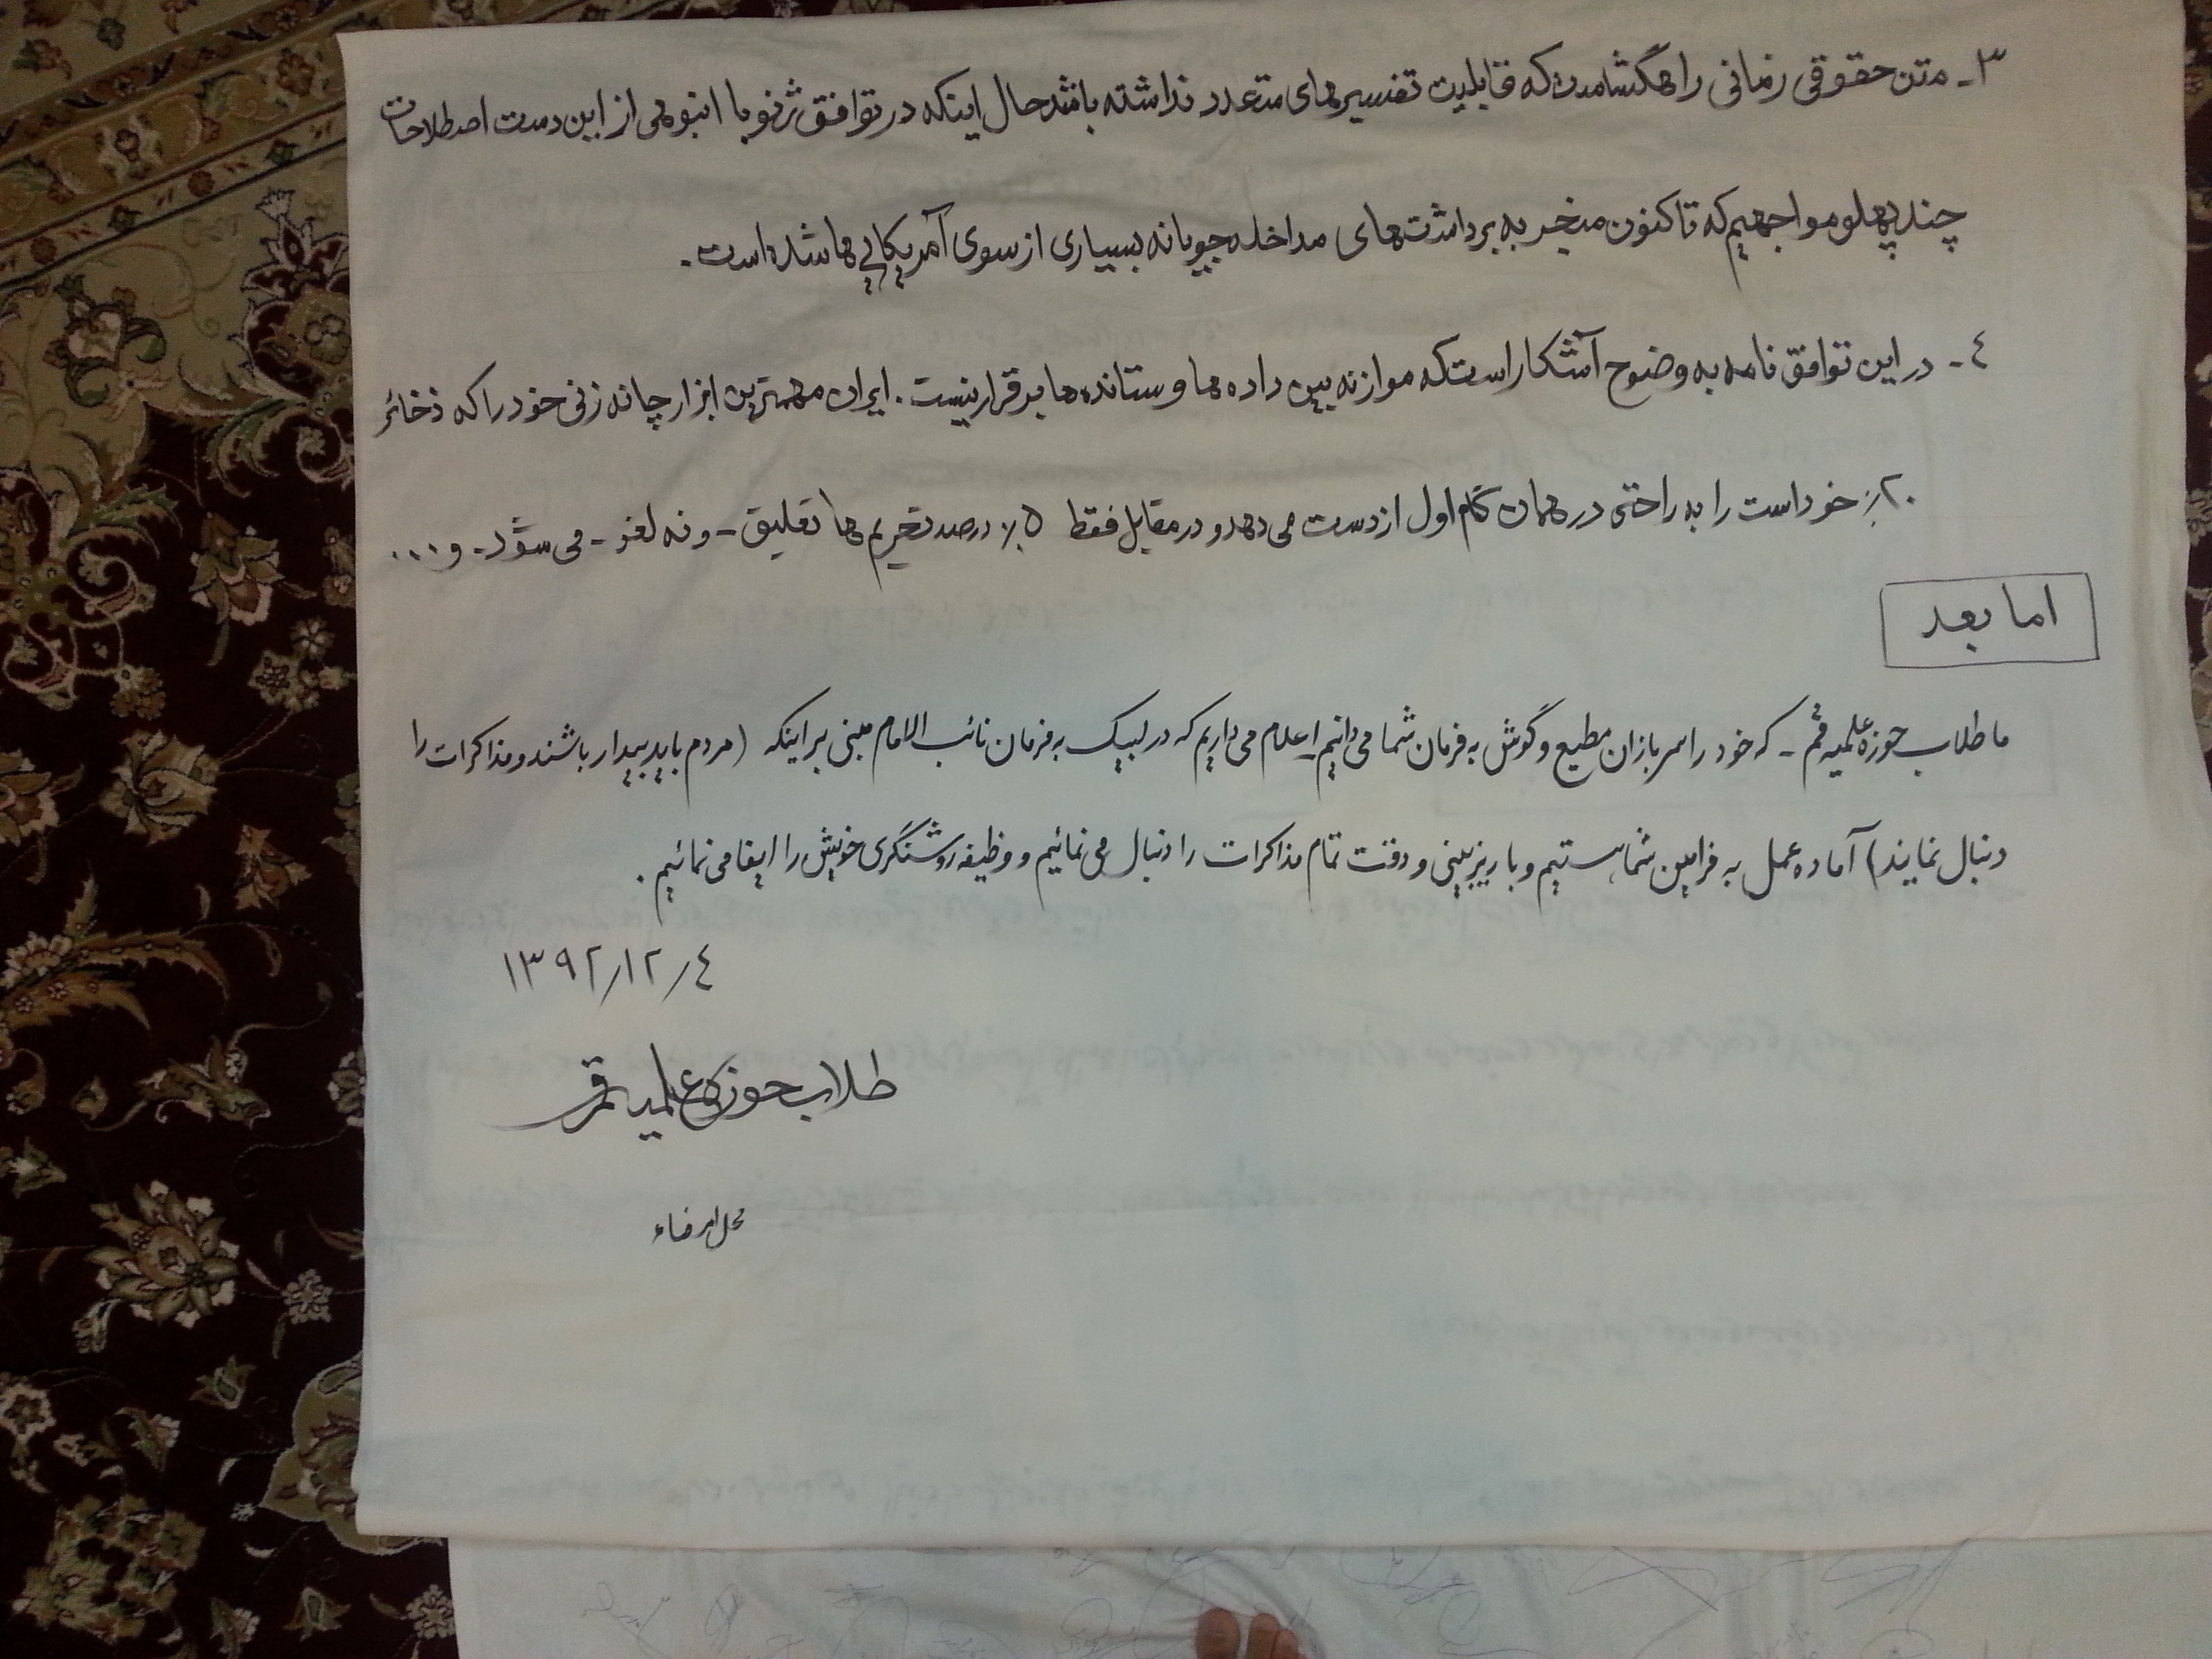 ۳ـ متن حقوقی زمانی راهگشاست که قابلیت تفسیرهای متعدد نداشته باشد حال اینکه در توافق ژنو با انبوهی از این دست اصطلاحات
چند پهلو مواجهیم که تا کنون منجر به برداشت‌های مداخله جویانه بسیاری از سوی آمریکایی ها شده است.
٤ـ در این توافق نامه به وضوح آشکار است که موازنه بین داده ها و ستانده ها برقرار نیست. ایران مهمترین ابزار چانه زنی خود را که ذخائر
۲۰٪ خود است را به راحتی در همان گام اول از دست می دهد و در مقابل فقط ۵٪ درصد تحریم ها تعلیق - و نه لغو - می شود - و ...
اما بعد
ما طلاب حوزه علمیه قم - که خود را سربازان مطیع و گوش به فرمان شما می دانیم - اعلام می داریم که در لبیک به فرمان نائب الامام مبنی بر اینکه (مردم باید بیدار باشند و مذاکرات را
دنبال نمایند) آماده عمل به فرامین شما هستیم و با ریزبینی و دقت تمام مذاکرات را دنبال می نمائیم و وظیفه روشنگری خویش را ایفا می نمائیم.
۱۳۹۲/۱۲/٤
طلاب حوزه‌ی علمیه قم
محل امضاء